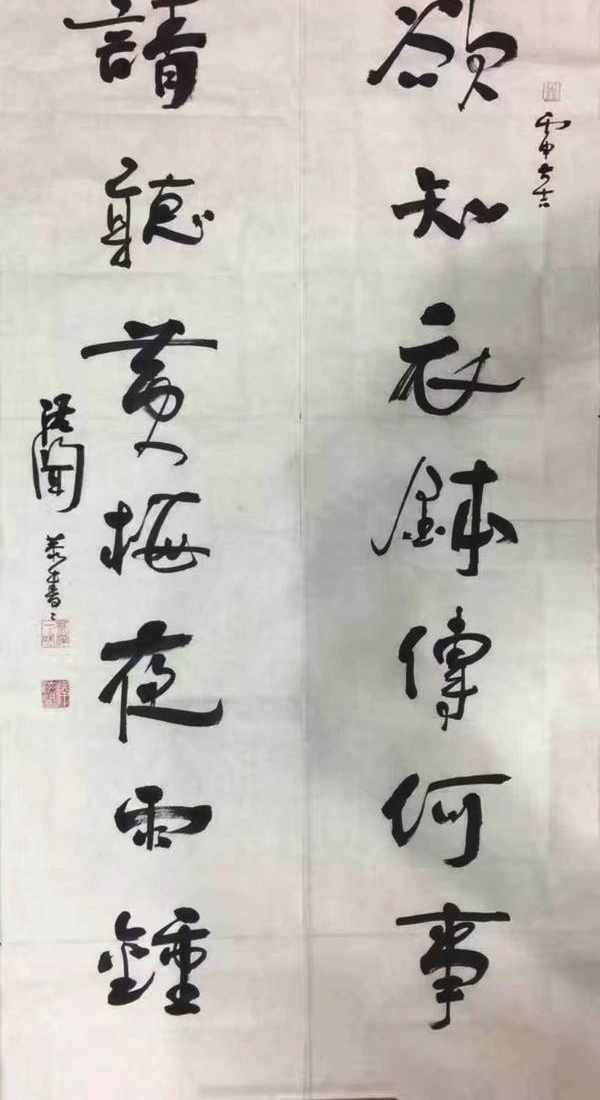 欲知衣鉢傳何事
請聽黃梅夜雨鐘